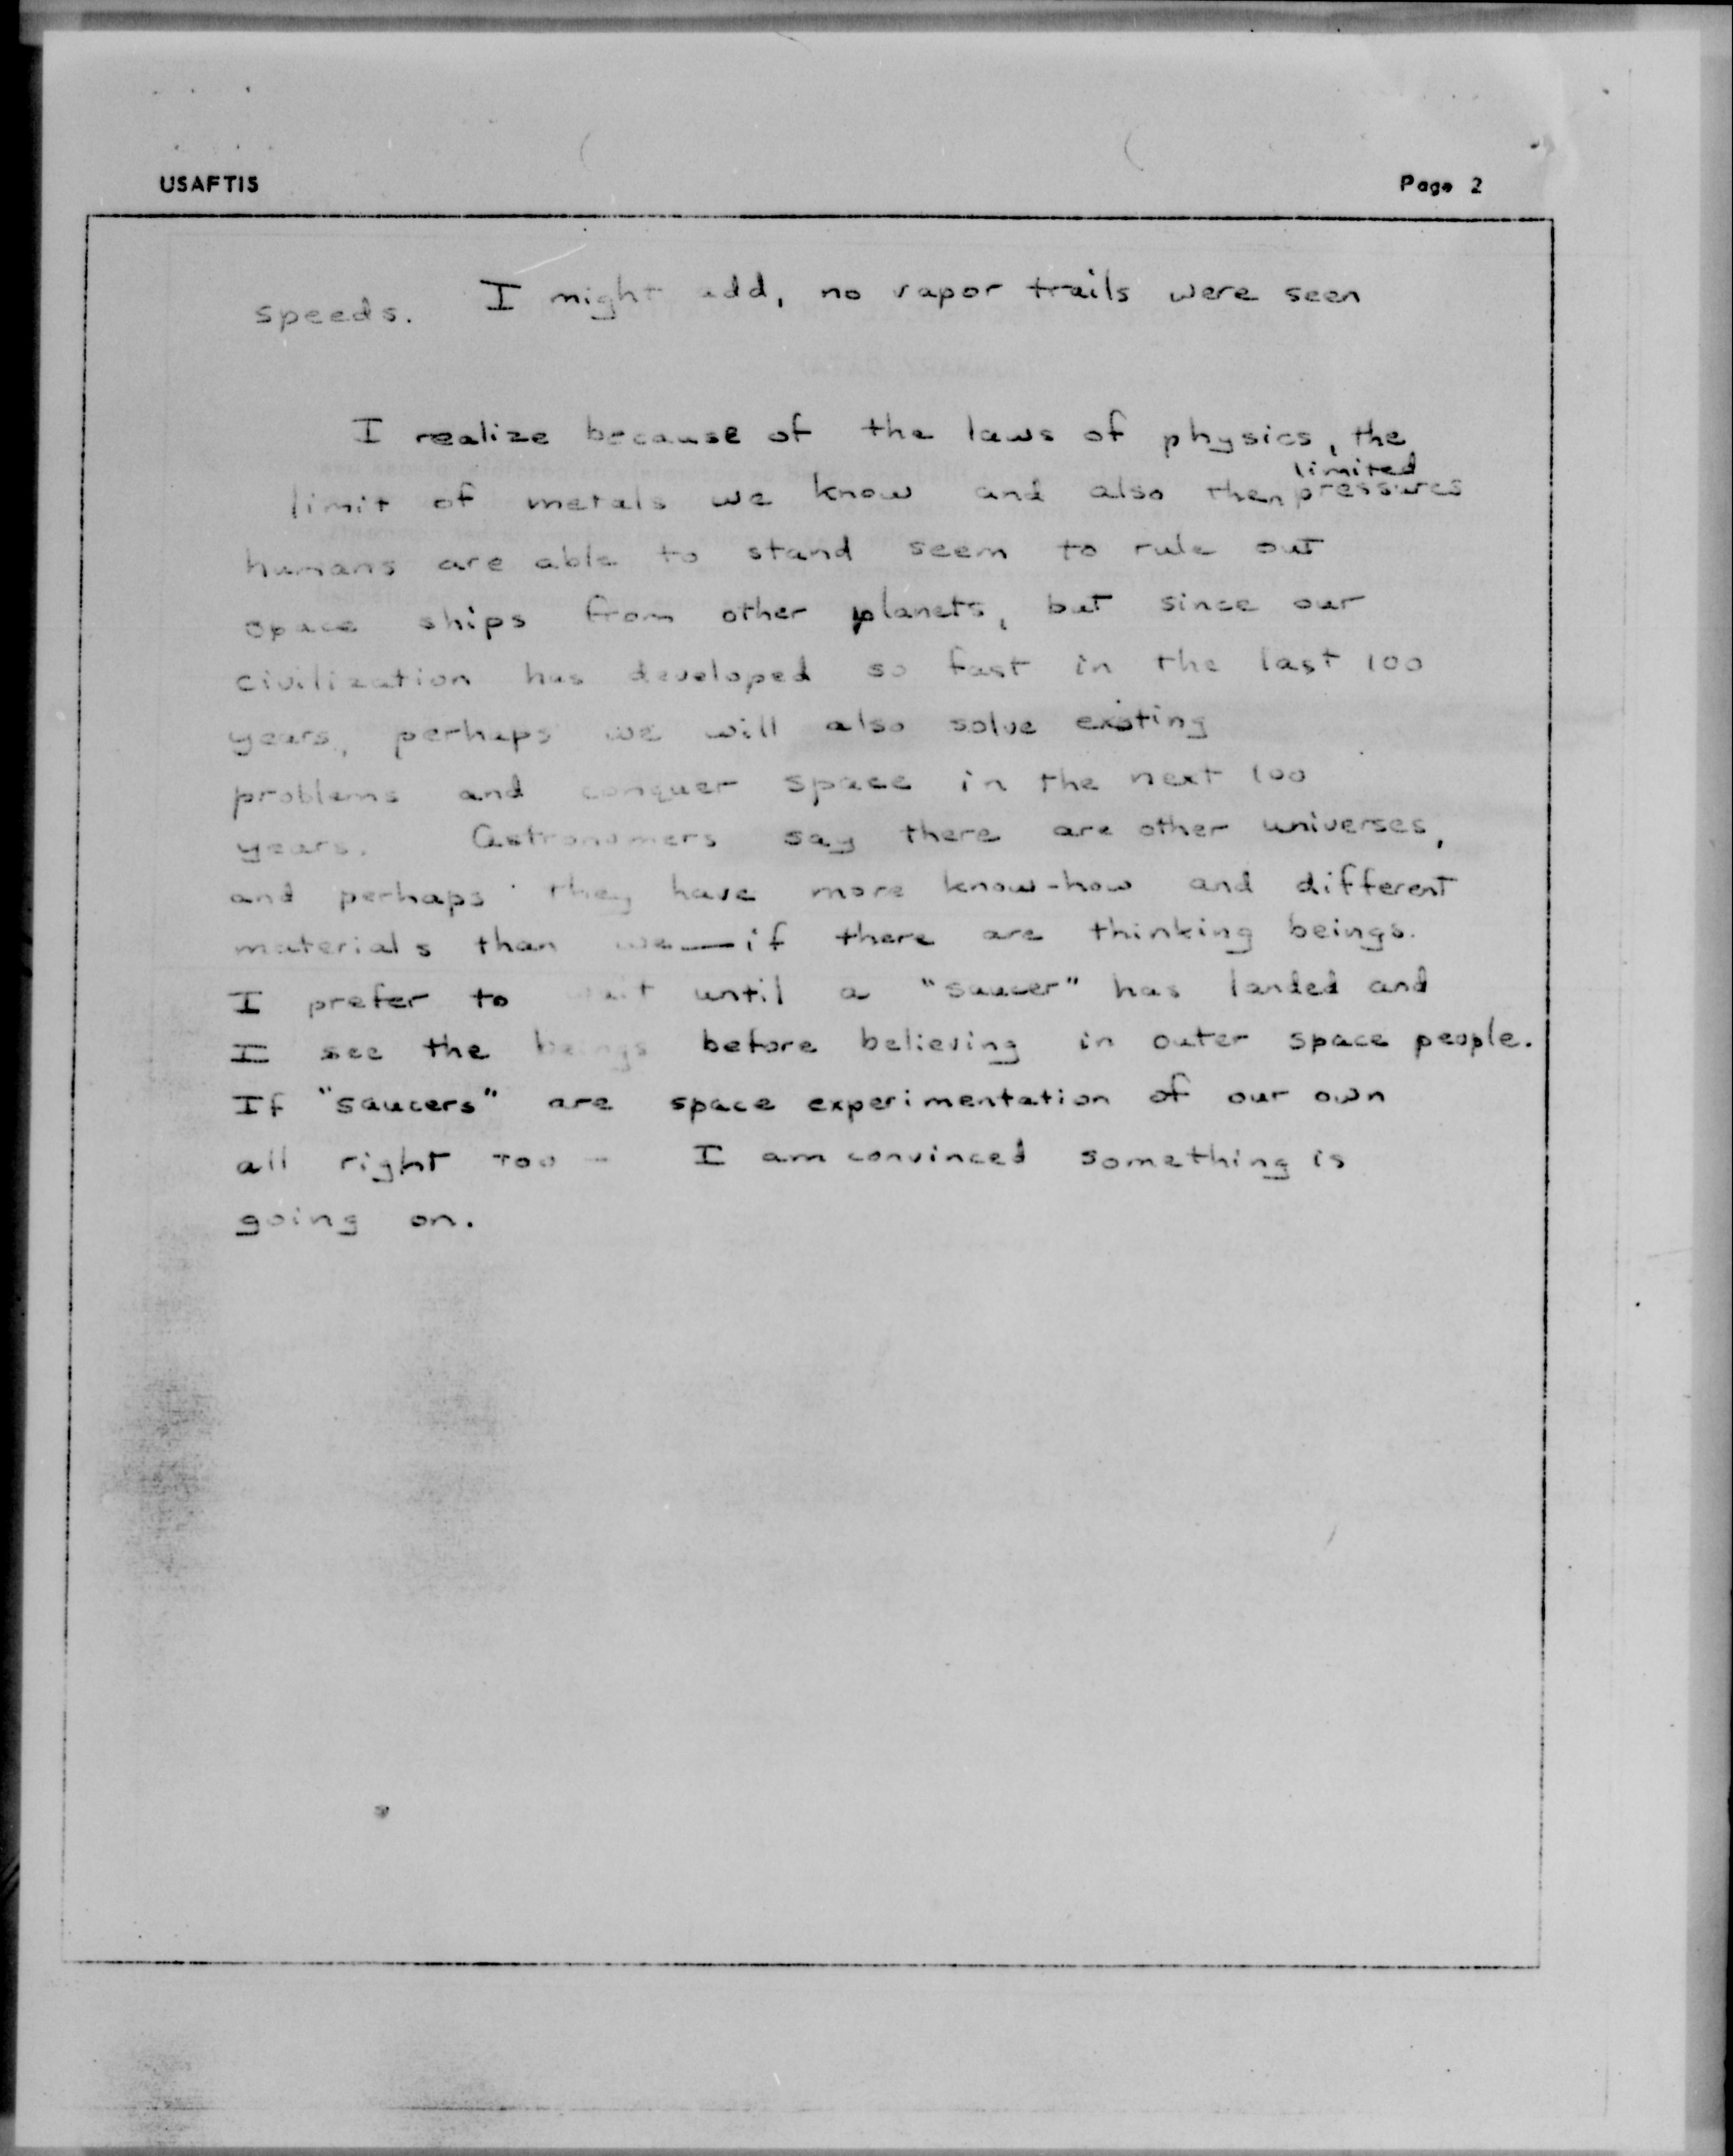 USAFTIS Page 2
speeds. I might add, no vapor trails were seen
I realize because of the laws of physics, the
limit of metals we know and also then limited pressures
humans are able to stand seem to rule out
space ships from other planets, but since our
civilization has developed so fast in the last 100
years, perhaps we will also solve existing
problems and conquer space in the next 100
years. Astronomers say there are other universes,
and perhaps they have more know-how and different
materials than we—if there are thinking beings.
I prefer to wait until a "saucer" has landed and
I see the beings before believing in outer space people.
If "saucers" are space experimentation of our own
all right too - I am convinced something is
going on.